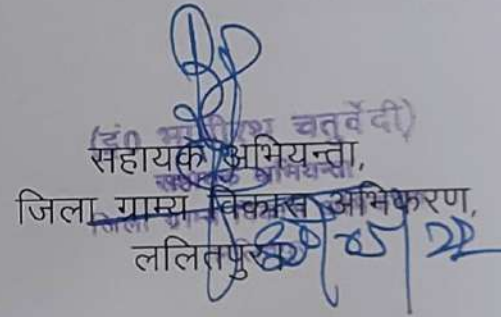 (इं0 चतुर्वेदी)
सहायक अभियन्ता,
जिला ग्राम्य विकास अभिकरण,
ललितपुर